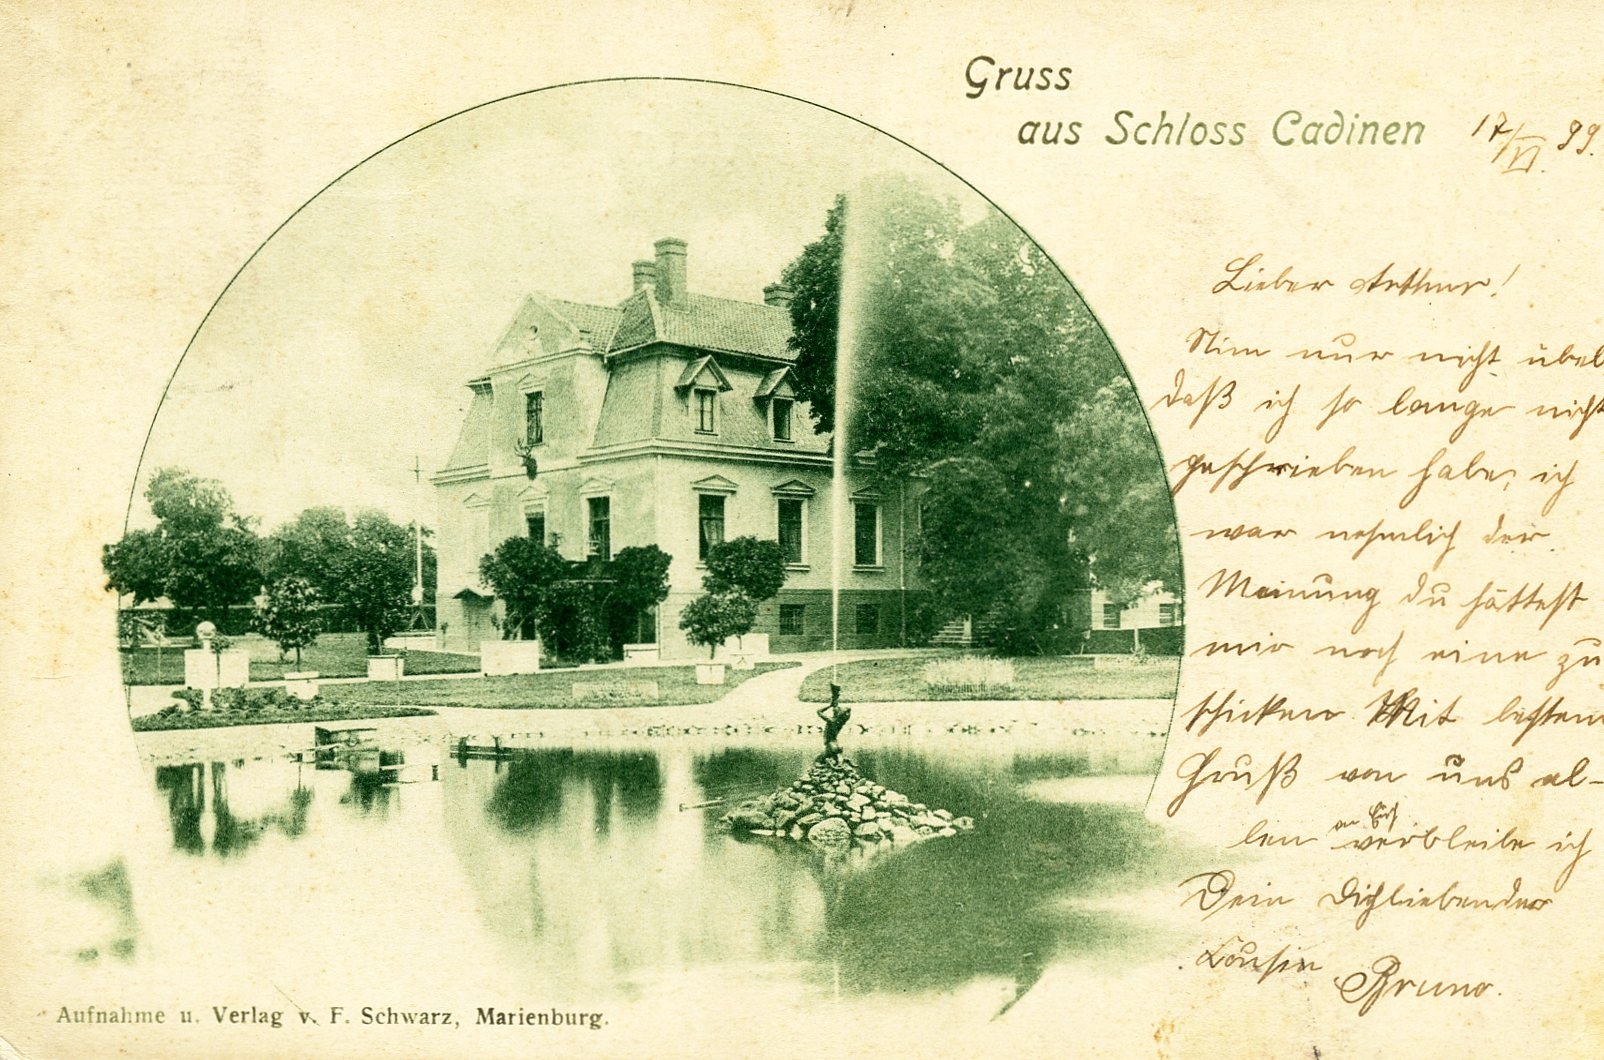 Gruss
aus Schloss Cadinen 17/VI. 99.
Lieber Arthur!
Nim nur nicht übel
daß ich so lange nicht
geschrieben habe, ich
war nehmlich der
Meinung du hättest
mir noch eine zu
schicken Mit bestem
Gruß von uns al-
an Euch
len verbleibe ich
Dein Dichliebender
Cousin Bruno.
Aufnahme u. Verlag v. F. Schwarz, Marienburg.